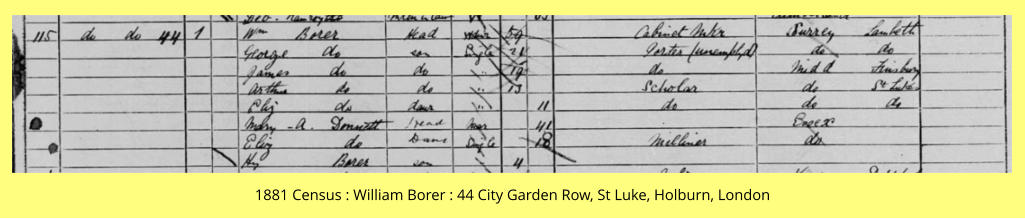 115 do do 44 1 Wm Borer Head 59 Cabinet Mkr Surrey Lambeth
George do son Single 21 Porter (unempl,d) do do
James do do " 19 do Midd Finsbury
Arthur do do " 13 Scholar do St Lukes
Eliz do daur " 11 do do do
Mary-A. Donnett Head Mar 41 Essex
Eliz do Daur Single 18 Milliner do
Hy Borer son 4
1881 Census : William Borer : 44 City Garden Row, St Luke, Holburn, London